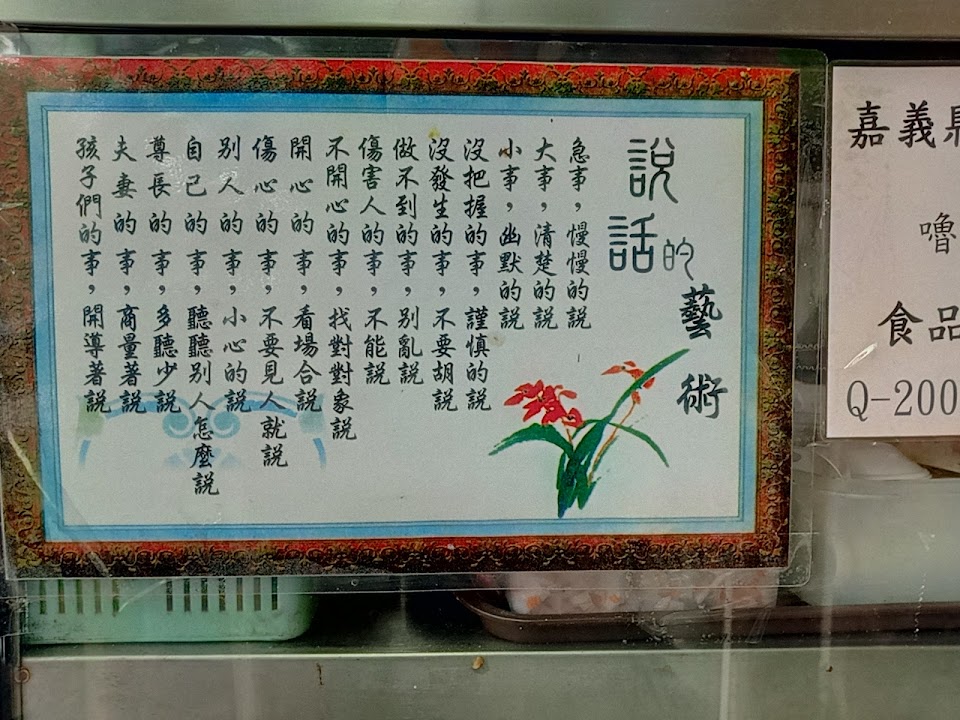 說話的藝術
急事，慢慢的說
大事，清楚的說
小事，幽默的說
沒把握的事，謹慎的說
沒發生的事，不要胡說
做不到的事，别亂說
傷害人的事，不能說
不開心的事，找對對象說
開心的事，看場合說
傷心的事，不要見人就說
别人的事，小心的說
自己的事，聽聽别人怎麼說
尊長的事，多聽少說
夫妻的事，商量著說
孩子們的事，開導著說
嘉義縣
嚕
食品
Q-200